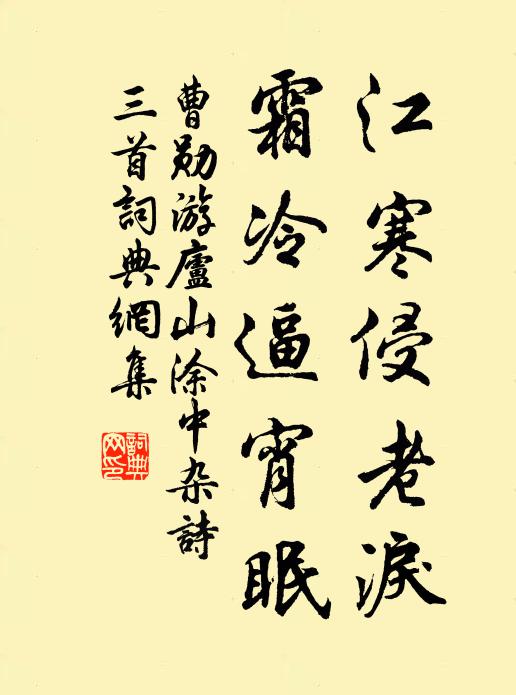 江寒侵老淚
霜冷逼宵眠
曹勛游廬山涂中杂詩
三首詞典網集
詞典网印